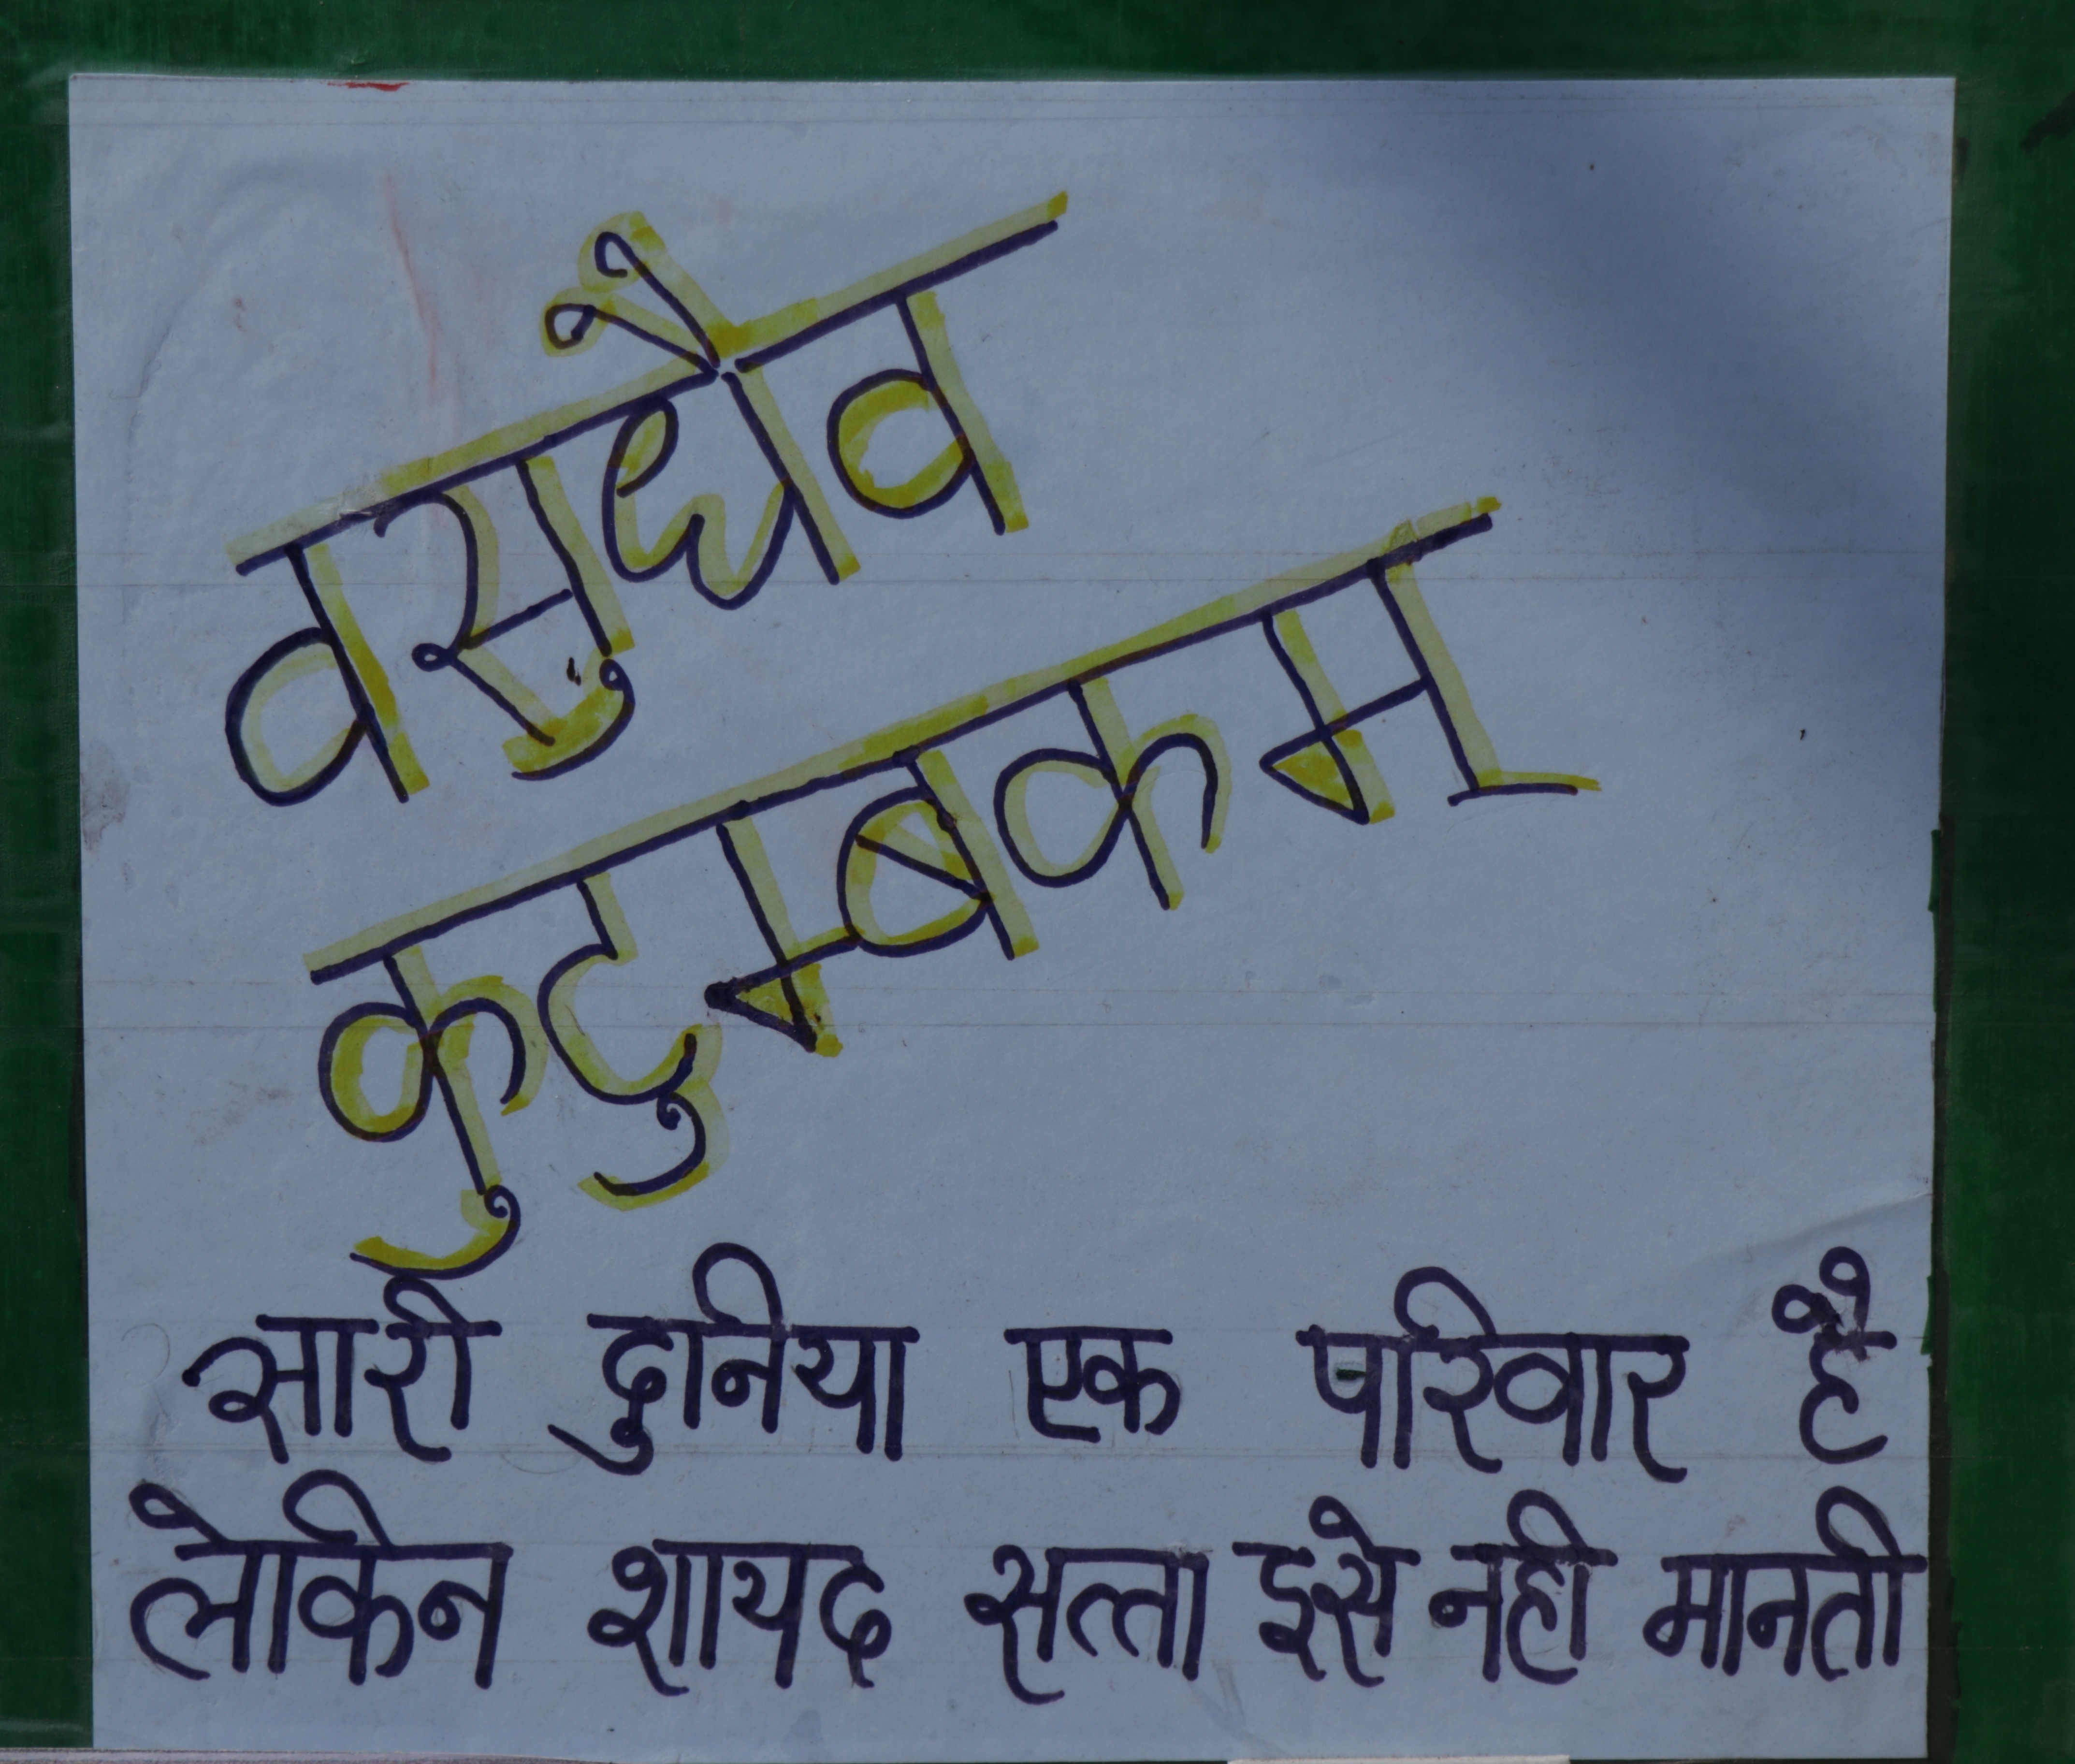 वसुधैव
कुटुम्बकम्
सारी दुनिया एक परिवार है
लेकिन शायद सत्ता इसे नही मानती